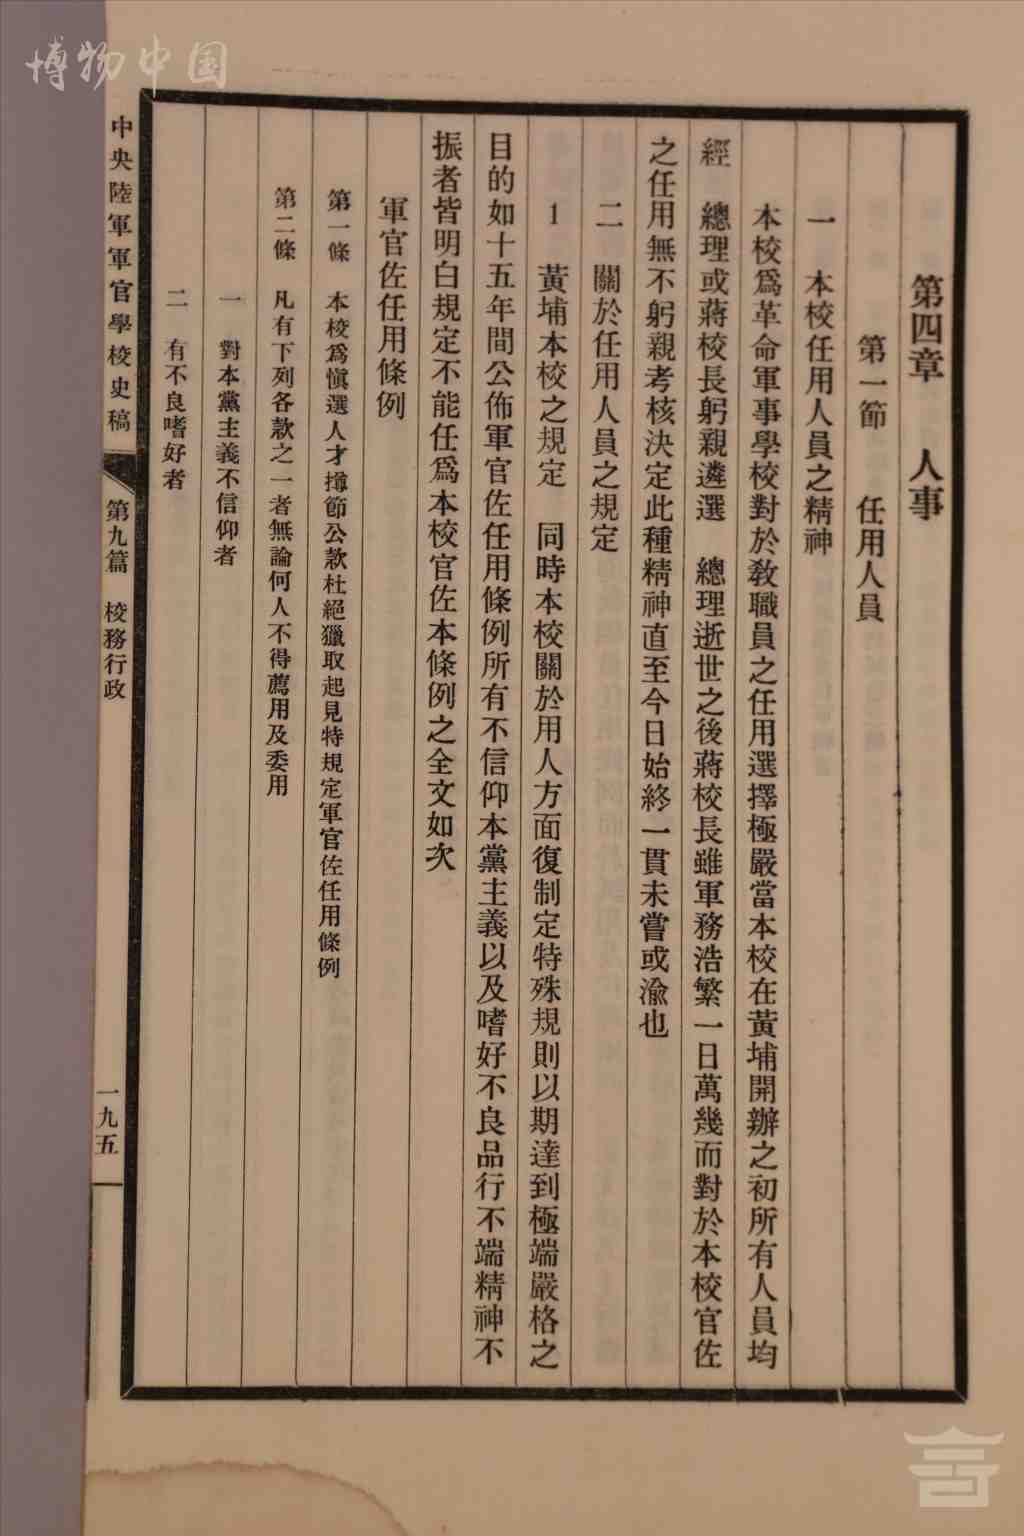 博物中国
第四章　人事
第一節　任用人員
一　本校任用人員之精神
本校爲革命軍事學校對於敎職員之任用選擇極嚴當本校在黃埔開辦之初所有人員均
經　總理或蔣校長躬親遴選　總理逝世之後蔣校長雖軍務浩繁一日萬幾而對於本校官佐
之任用無不躬親考核決定此種精神直至今日始終一貫未嘗或渝也
二　關於任用人員之規定
1　黃埔本校之規定　同時本校關於用人方面復制定特殊規則以期達到極端嚴格之
目的如十五年間公佈軍官佐任用條例所有不信仰本黨主義以及嗜好不良品行不端精神不
振者皆明白規定不能任爲本校官佐本條例之全文如次
軍官佐任用條例
第一條　本校爲愼選人才撙節公款杜絕獵取起見特規定軍官佐任用條例
第二條　凡有下列各款之一者無論何人不得薦用及委用
一　對本黨主義不信仰者
二　有不良嗜好者
中央陸軍軍官學校史稿
第九篇　校務行政
一九五